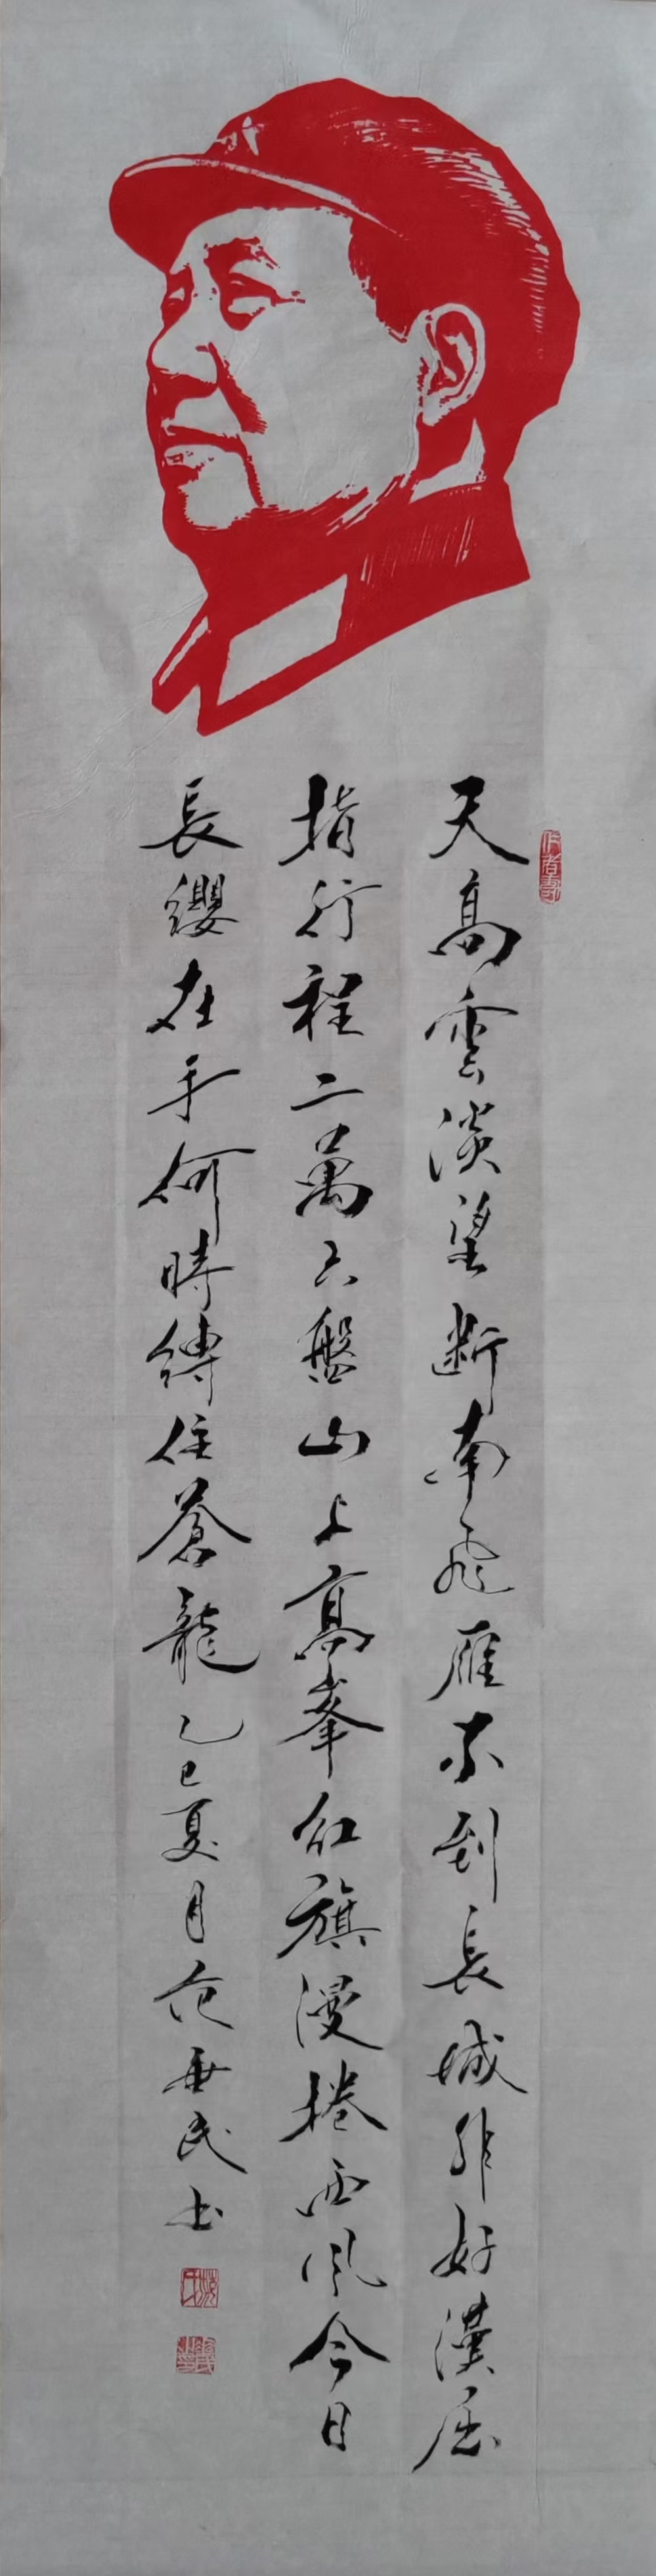 天高雲淡望断南飛雁不到長城非好漢屈
指行程二萬六盤山上髙峯紅旗漫捲西風今日
長纓在手何時縛住蒼龍乙巳夏月范垂民书
作者壽